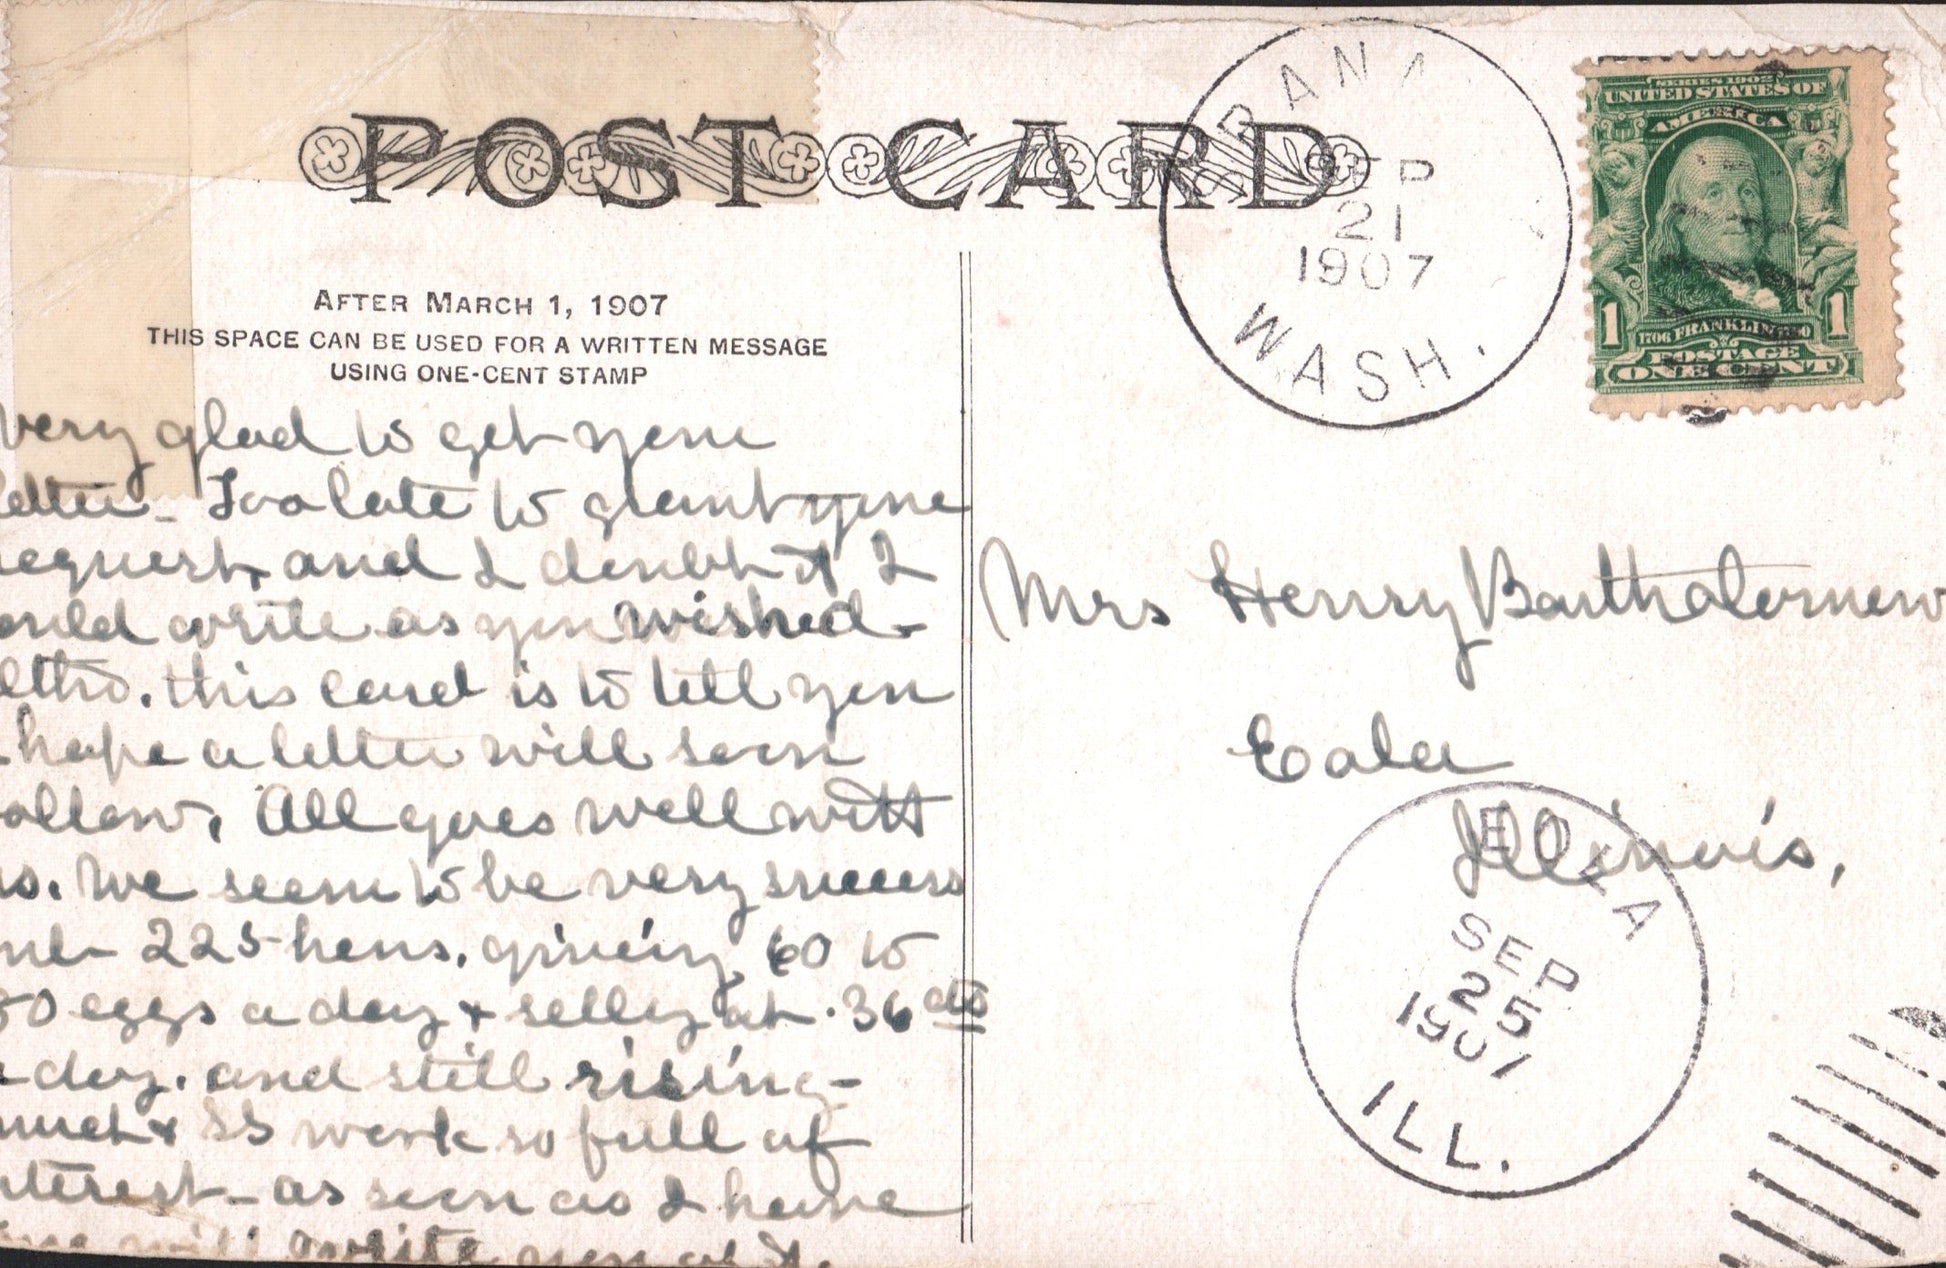 POST CARD
AFTER MARCH 1, 1907
THIS SPACE CAN BE USED FOR A WRITTEN MESSAGE
USING ONE-CENT STAMP
very glad to get your
letter - Too late to grant your
request, and I doubt if I
ould write as you wished -
altho. this card is to tell you
hope a letter will soon
ollow. All goes well with
us. We seem to be very success
225 hens. giving 60 to
80 eggs a day & selling at .36 cts
day. and still rising -
& SS work so full of
nterest - as soon as I have
will write you of it.
WASH.
SEP
21
1907
SERIES 1902
UNITED STATES OF
AMERICA
1 1
1706 FRANKLIN 1790
POSTAGE
ONE CENT
Mrs Henry Bartholomew
Eola
Illinois,
EOLA
SEP
25
1907
ILL.